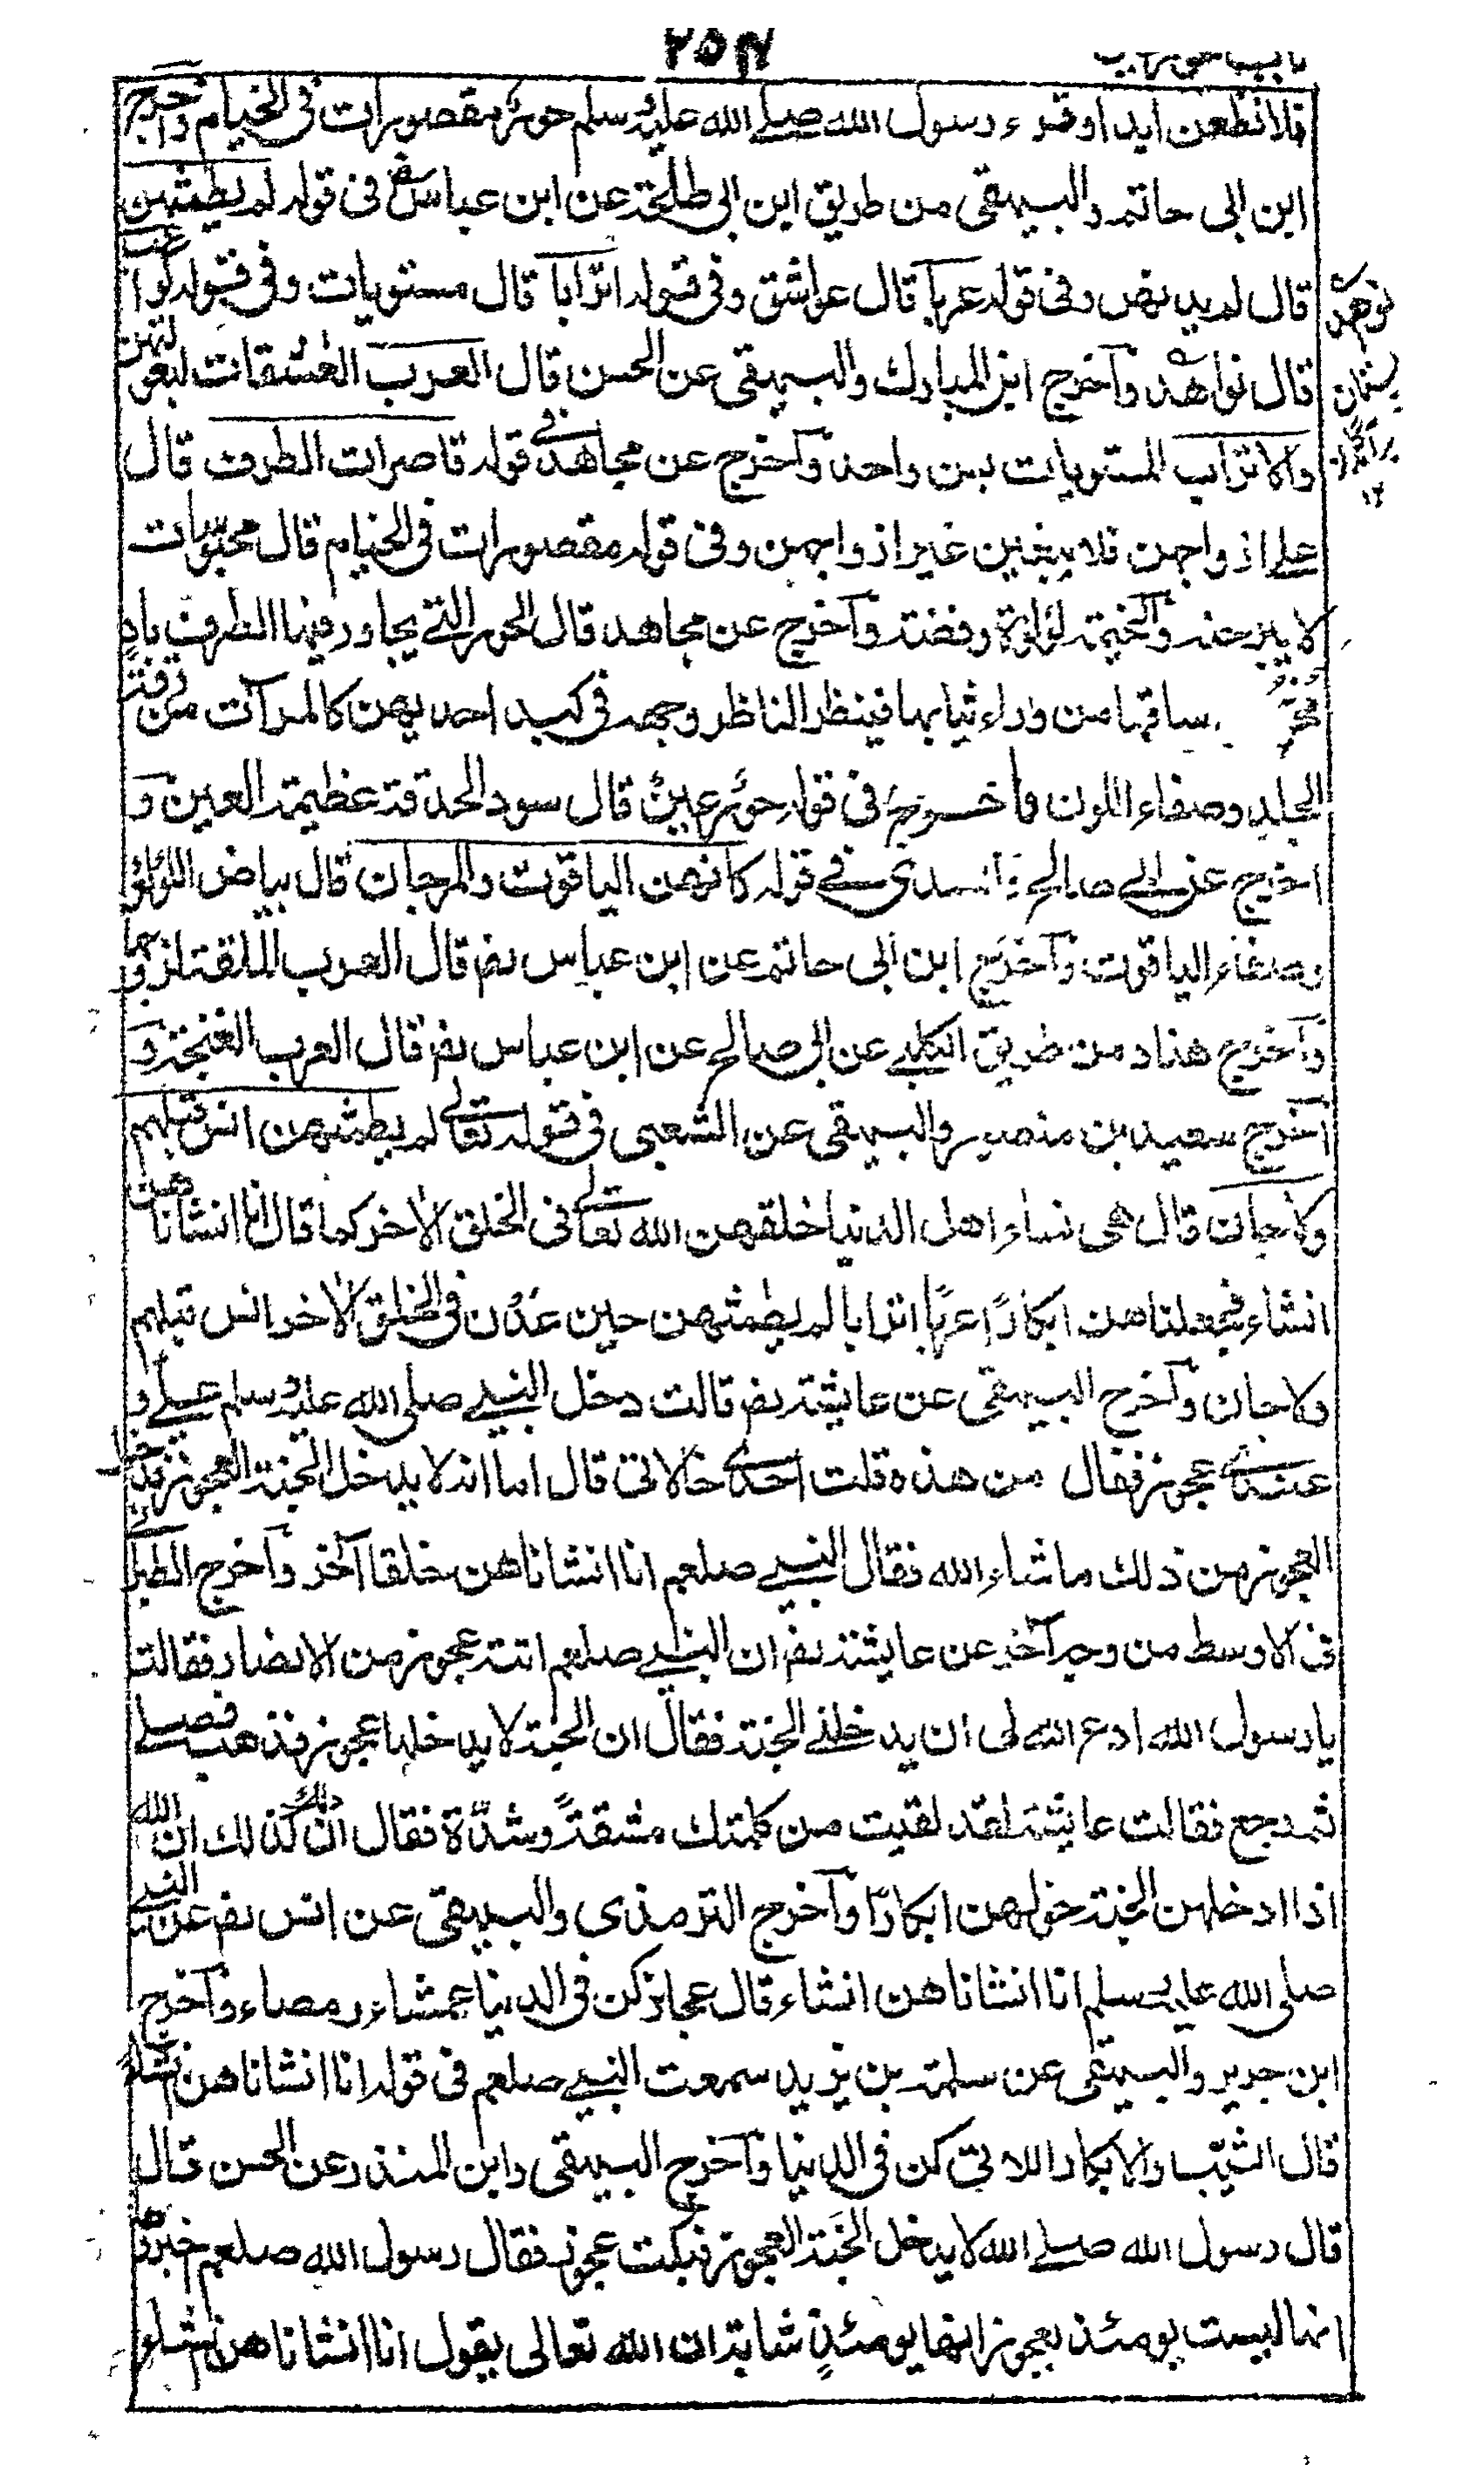 ٢٥٧
فلا نظعن ابدا وقرء رسول الله صلے الله عليه وسلم حور مقصورات فى الخيام واخرج
ابن ابى حاتم والبيهقى من طريق ابن ابى طلحة عن ابن عباس رض فى قوله لم يطمثهن
قال لم يدمهن وفى قوله عربا قال عواشق وفى قوله اترابا قال مستويات وفى قوله كواعب
قال نواهد وآخرج ابن المبارك والبيهقى عن الحسن قال العرب العشقات لبعولتهن
والاتراب المستويات بسن واحد وآخرج عن مجاهد فى قوله قاصرات الطرف قال
على ازواجهن فلا يبغين غير ازواجهن وفى قوله مقصورات فى الخيام قال محبوسات
لا يبرحنه والخيمة لؤلؤة وفضة وآخرج عن مجاهد قال الحور التے يحاور فيها الطرف باد
مخ ساقها من وراء ثيابها فينظر الناظر وجهه فى كبد احديهن كالمرآت من رقة
الجلد وصفاء اللون وأخرج فى قوله حور عين قال سود الحدقة عظيمة العين و
اخرج عن ابے صالح والسدى فے قوله كانهن الياقوت والمرجان قال بياض اللؤلؤ
وصفاء الياقوت وآخرج ابن ابى حاتم عن ابن عباس رض قال العرب الملقة لزوجها
وآخرج هناد من طريق الكلبے عن ابى صالح عن ابن عباس رض قال العرب الغنجة و
آخرج سعيد بن منصور والبيهقى عن الشعبى فى قوله تعالے لم يطمثهن انس قبلهم
ولا جان قال هى نساء اهل الدنيا خلقهن الله تعالے فى الخلق الاخر كما قال انا انشاناهن
انشاء فجعلناهن ابكارًا عربًا اترابا لم يطمثهن حين عدن فى الخلق الاخر انس قبلهم
ولا جان وآخرج البيهقى عن عايشة رض قالت دخل النبے صلى الله عليه وسلم علے و
عندے عجوز فقال من هذه قلت احدے خالاتى قال اما انه لا يدخل الجنة العجوز فدخل
العجوز من ذلك ما شاء الله فقال النبے صلعم انا انشاناهن خلقا آخر وآخرج الطبرانى
فى الاوسط من وجه آخر عن عايشة رض ان النبے صلعم اتته عجوز من الانصار فقالت
يا رسول الله ادع الله لى ان يدخلنے الجنة فقال ان الجنة لا يدخلها عجوز فذهب فصلے
ثم رجع فقالت عايشة لقد لقيت من كلمتك مشقةً وشدّة فقال ان ذلك كذلك ان الله
اذا ادخلهن الجنة حولهن ابكارًا وآخرج الترمذى والبيهقى عن انس رض عن النبے
صلى الله عليه وسلم انا انشاناهن انشاء قال عجايز كن فى الدنيا عمشاء رمصاء وآخرج
ابن جرير والبيهقى عن سلمة بن يزيد سمعت النبے صلعم فى قوله انا انشاناهن انشاء
قال الثيّب والابكار اللاتى كن فى الدنيا وآخرج البيهقى وابن المنذر عن الحسن قال
قال رسول الله صلے الله لا يدخل الجَنة العجوز فبكت عجوز فقال رسول الله صلعم خبروها
انها ليست يومئذ بعجوز انها يومئذٍ شابة ان الله تعالى يقول انا انشاناهن انشاء
نوهد
پستان
١٢